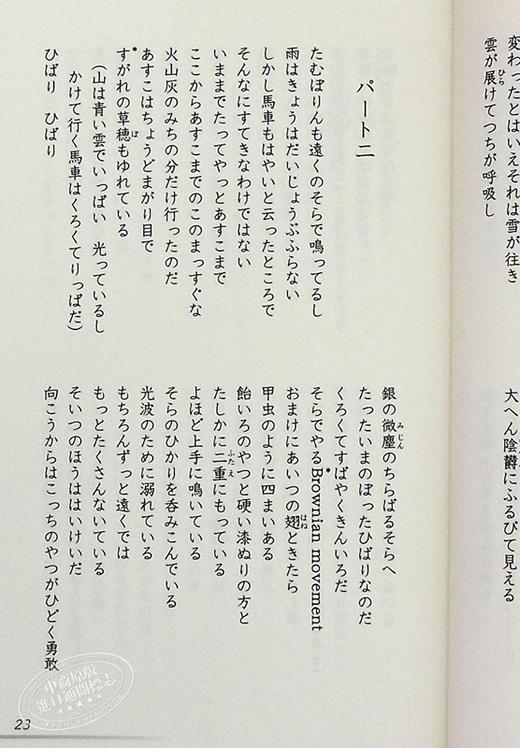 変わったとはいえそれは雪が往き
雲が展けてつちが呼吸し
大へん陰欝にふるびて見える
パート二
たむぼりんも遠くのそらで鳴ってるし
雨はきょうはだいじょうぶふらない
しかし馬車もはやいと云ったところで
そんなにすてきなわけではない
いままでたってやっとあすこまで
ここからあすこまでのこのまっすぐな
火山灰のみちの分だけ行ったのだ
あすこはちょうどまがり目で
すがれの草穂もゆれている
(山は青い雲でいっぱい 光っているし
かけて行く馬車はくろくてりっぱだ)
ひばり ひばり
銀の微塵のちらばるそらへ
たったいまのぼったひばりなのだ
くろくてすばやくきんいろだ
そらでやるBrownian movement
おまけにあいつの翅ときたら
甲虫のように四まいある
飴いろのやつと硬い漆ぬりの方と
たしかに二重にもっている
よほど上手に鳴いている
そらのひかりを呑みこんでいる
光波のために溺れている
もちろんずっと遠くでは
もっとたくさんないている
そいつのほうははいけいだ
向こうからはこっちのやつがひどく勇敢
23
中商原版
進口通關標志